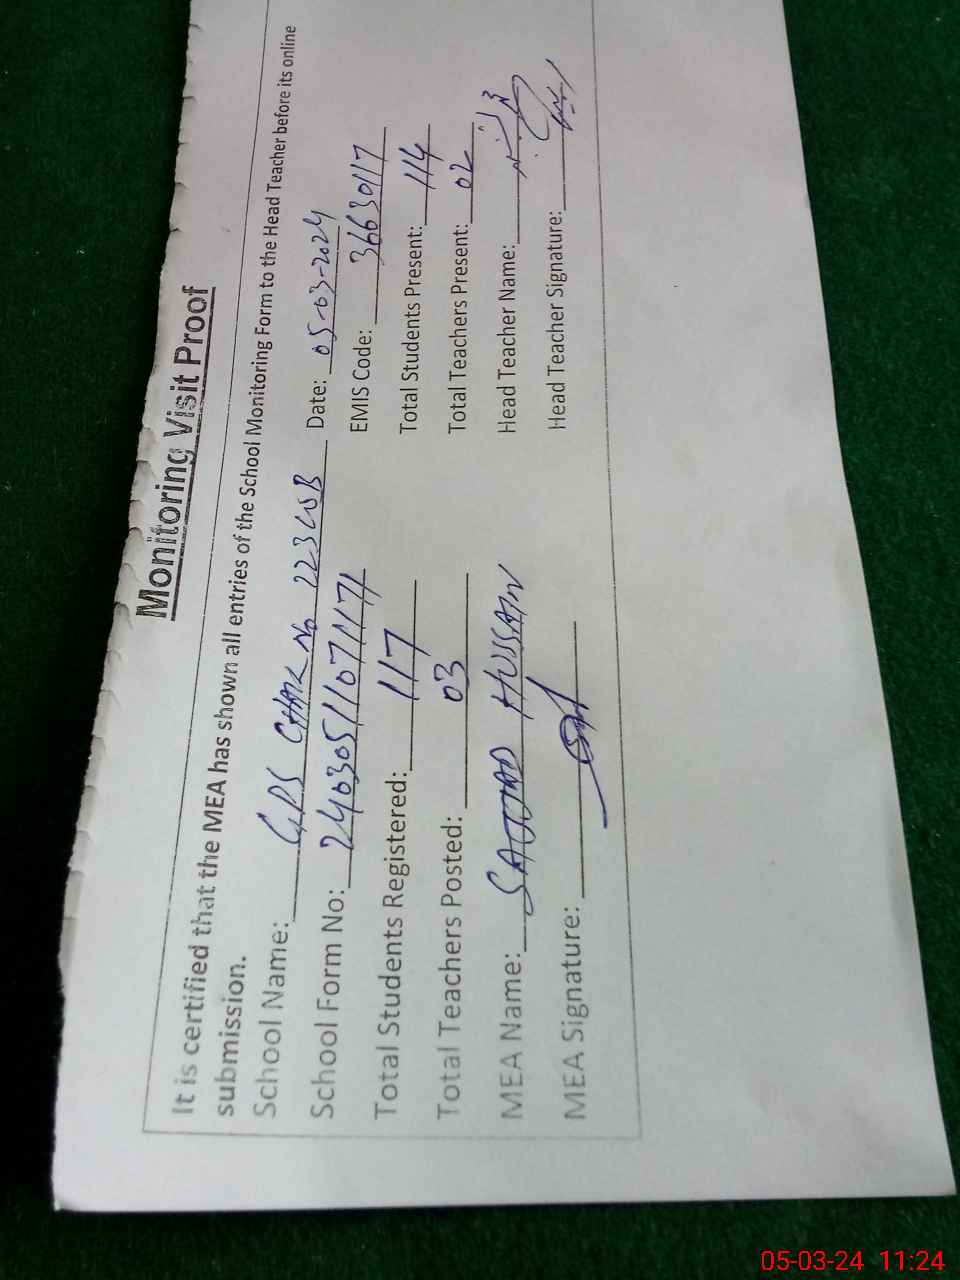 Monitoring Visit Proof
It is certified that the MEA has shown all entries of the School Monitoring Form to the Head Teacher before its online
submission.
School Name: GPS CHAK No 223 WB Date: 05-03-2024
School Form No: 240305110717171 EMIS Code: 36630117
Total Students Registered: 117 Total Students Present: 114
Total Teachers Posted: 03 Total Teachers Present: 02
MEA Name: SAJJAD HUSSAIN Head Teacher Name:
MEA Signature: Head Teacher Signature:
05-03-24 11:24